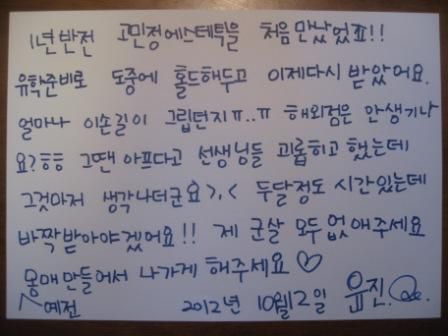 1년 반전 고민정에스테틱을 처음 만났었죠!!
유학준비로 도중에 홀드해두고 이제다시 받았어요.
얼마나 이손길이 그립던지ㅠ..ㅠ 해외점은 안생기나
요?ㅎㅎ 그땐 아프다고 선생님들 괴롭히고 했는데
그것마저 생각나더군요>,< 두달정도 시간있는데
바짝받아야겠어요!! 제 군살 모두 없애주세요
몸매만들어서 나가게 해주세요♡
예전 2012년 10월12일 유진.